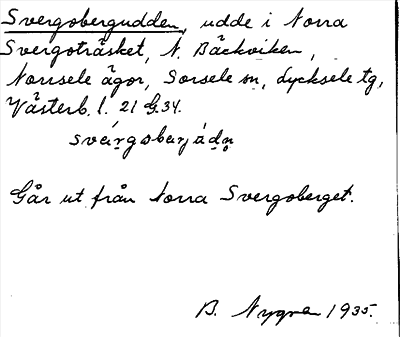 Svergobergudden, udde i Norra
Svergoträsket, N. Bäckviken,
Norrsele ägor, Sorsele sn, Lycksele tg,
Västerb. l. 21 G.34.
Går ut från Norra Svergoberget.
B. Nygren 1935.